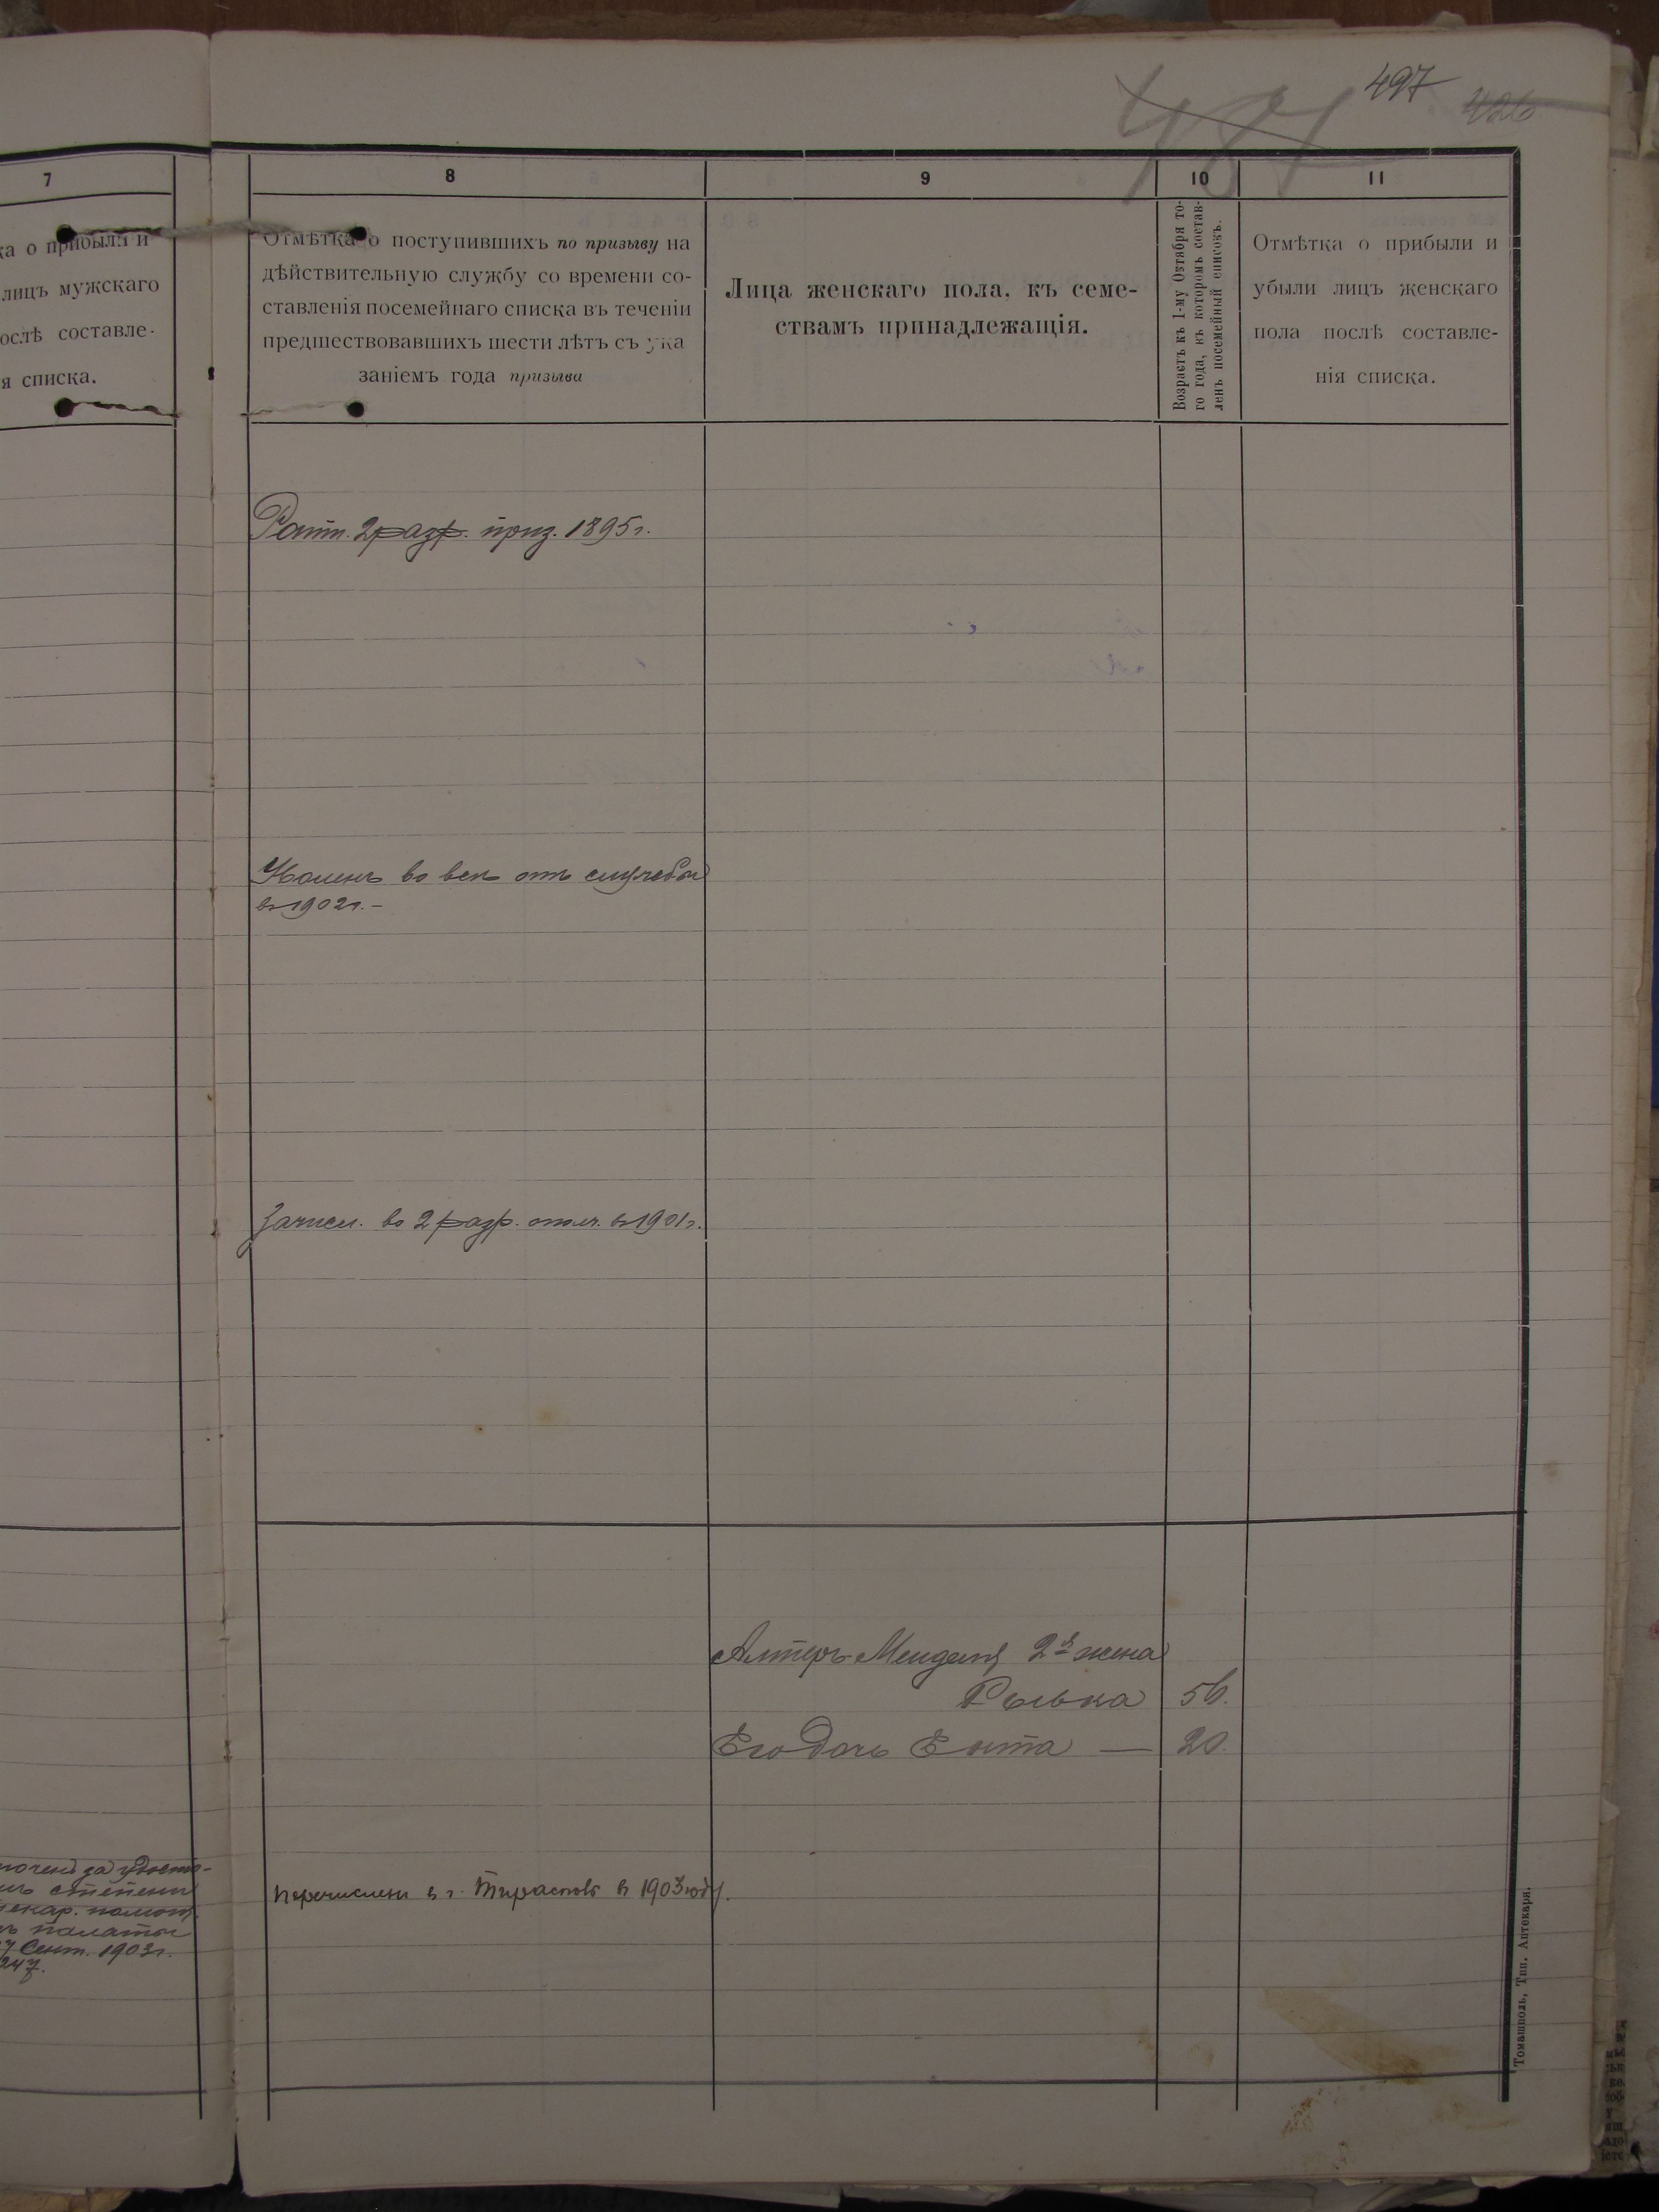 497
426
481
7
8
9
10
11
ка о прибыли и
лицъ мужскаго
ослѣ составле-
я списка.
Отмѣтка о поступившихъ по призыву на
дѣйствительную службу со времени со-
ставленія посемейнаго списка въ теченіи
предшествовавшихъ шести лѣтъ съ ука
заніемъ года призыва
Лица женскаго пола, къ семе-
ствамъ принадлежащія.
Возрастъ къ 1-му Октября то-
го года, къ которомъ состав-
ленъ посемейный списокъ.
Отмѣтка о прибыли и
убыли лицъ женскаго
пола послѣ составле-
нія списка.
Ратн. 2 разр. приз. 1895 г.
во все отъ службы
въ 1902 г. –
Зачисл. во 2 разр. опол. въ 1901 г.
Алтеръ-Менделя 2я жена
Рывка 56.
Его дочь Ента — 20.
за удосто-
степени
палаты
7 Сент. 1903 г.
247.
перечислен в г. Тирасполь в 1903 году.
Томашполь, Тип. Аптекаря.